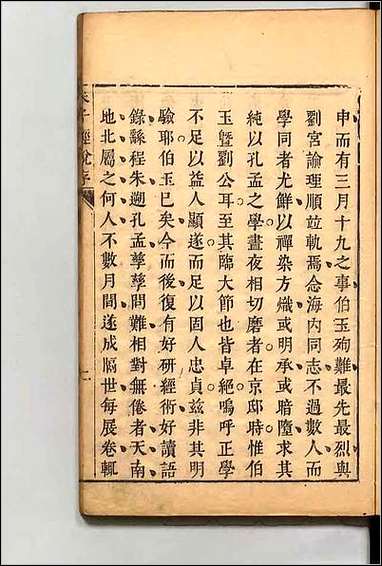 申而有三月十九之事伯玉殉難最先最烈與
劉宮諭理順竝軌焉念海内同志不過數人而
學同者尤鮮以禪染方熾或明承或暗墮求其
純以孔孟之學晝夜相切磨者在京邸時惟伯
玉曁劉公耳至其臨大節也皆卓絶嗚呼正學
不足以益人顯遂而足以固人忠貞兹非其明
驗耶伯玉已矣今而後復有好硏經術好讀語
錄繇程朱遡孔孟孳孳問難相對無倦者天南
地北屬之何人不數月間遂成隔世每展卷輒
朱子經說序